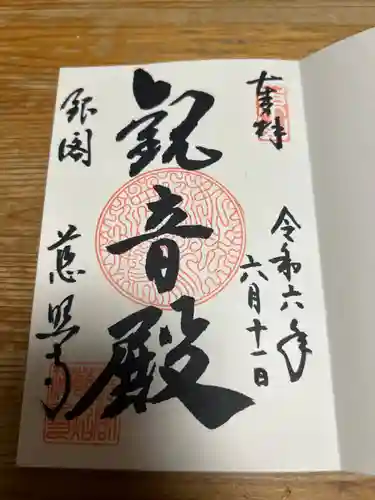 奉拝
令和六年
六月十一日
観音殿
銀閣
慈照寺